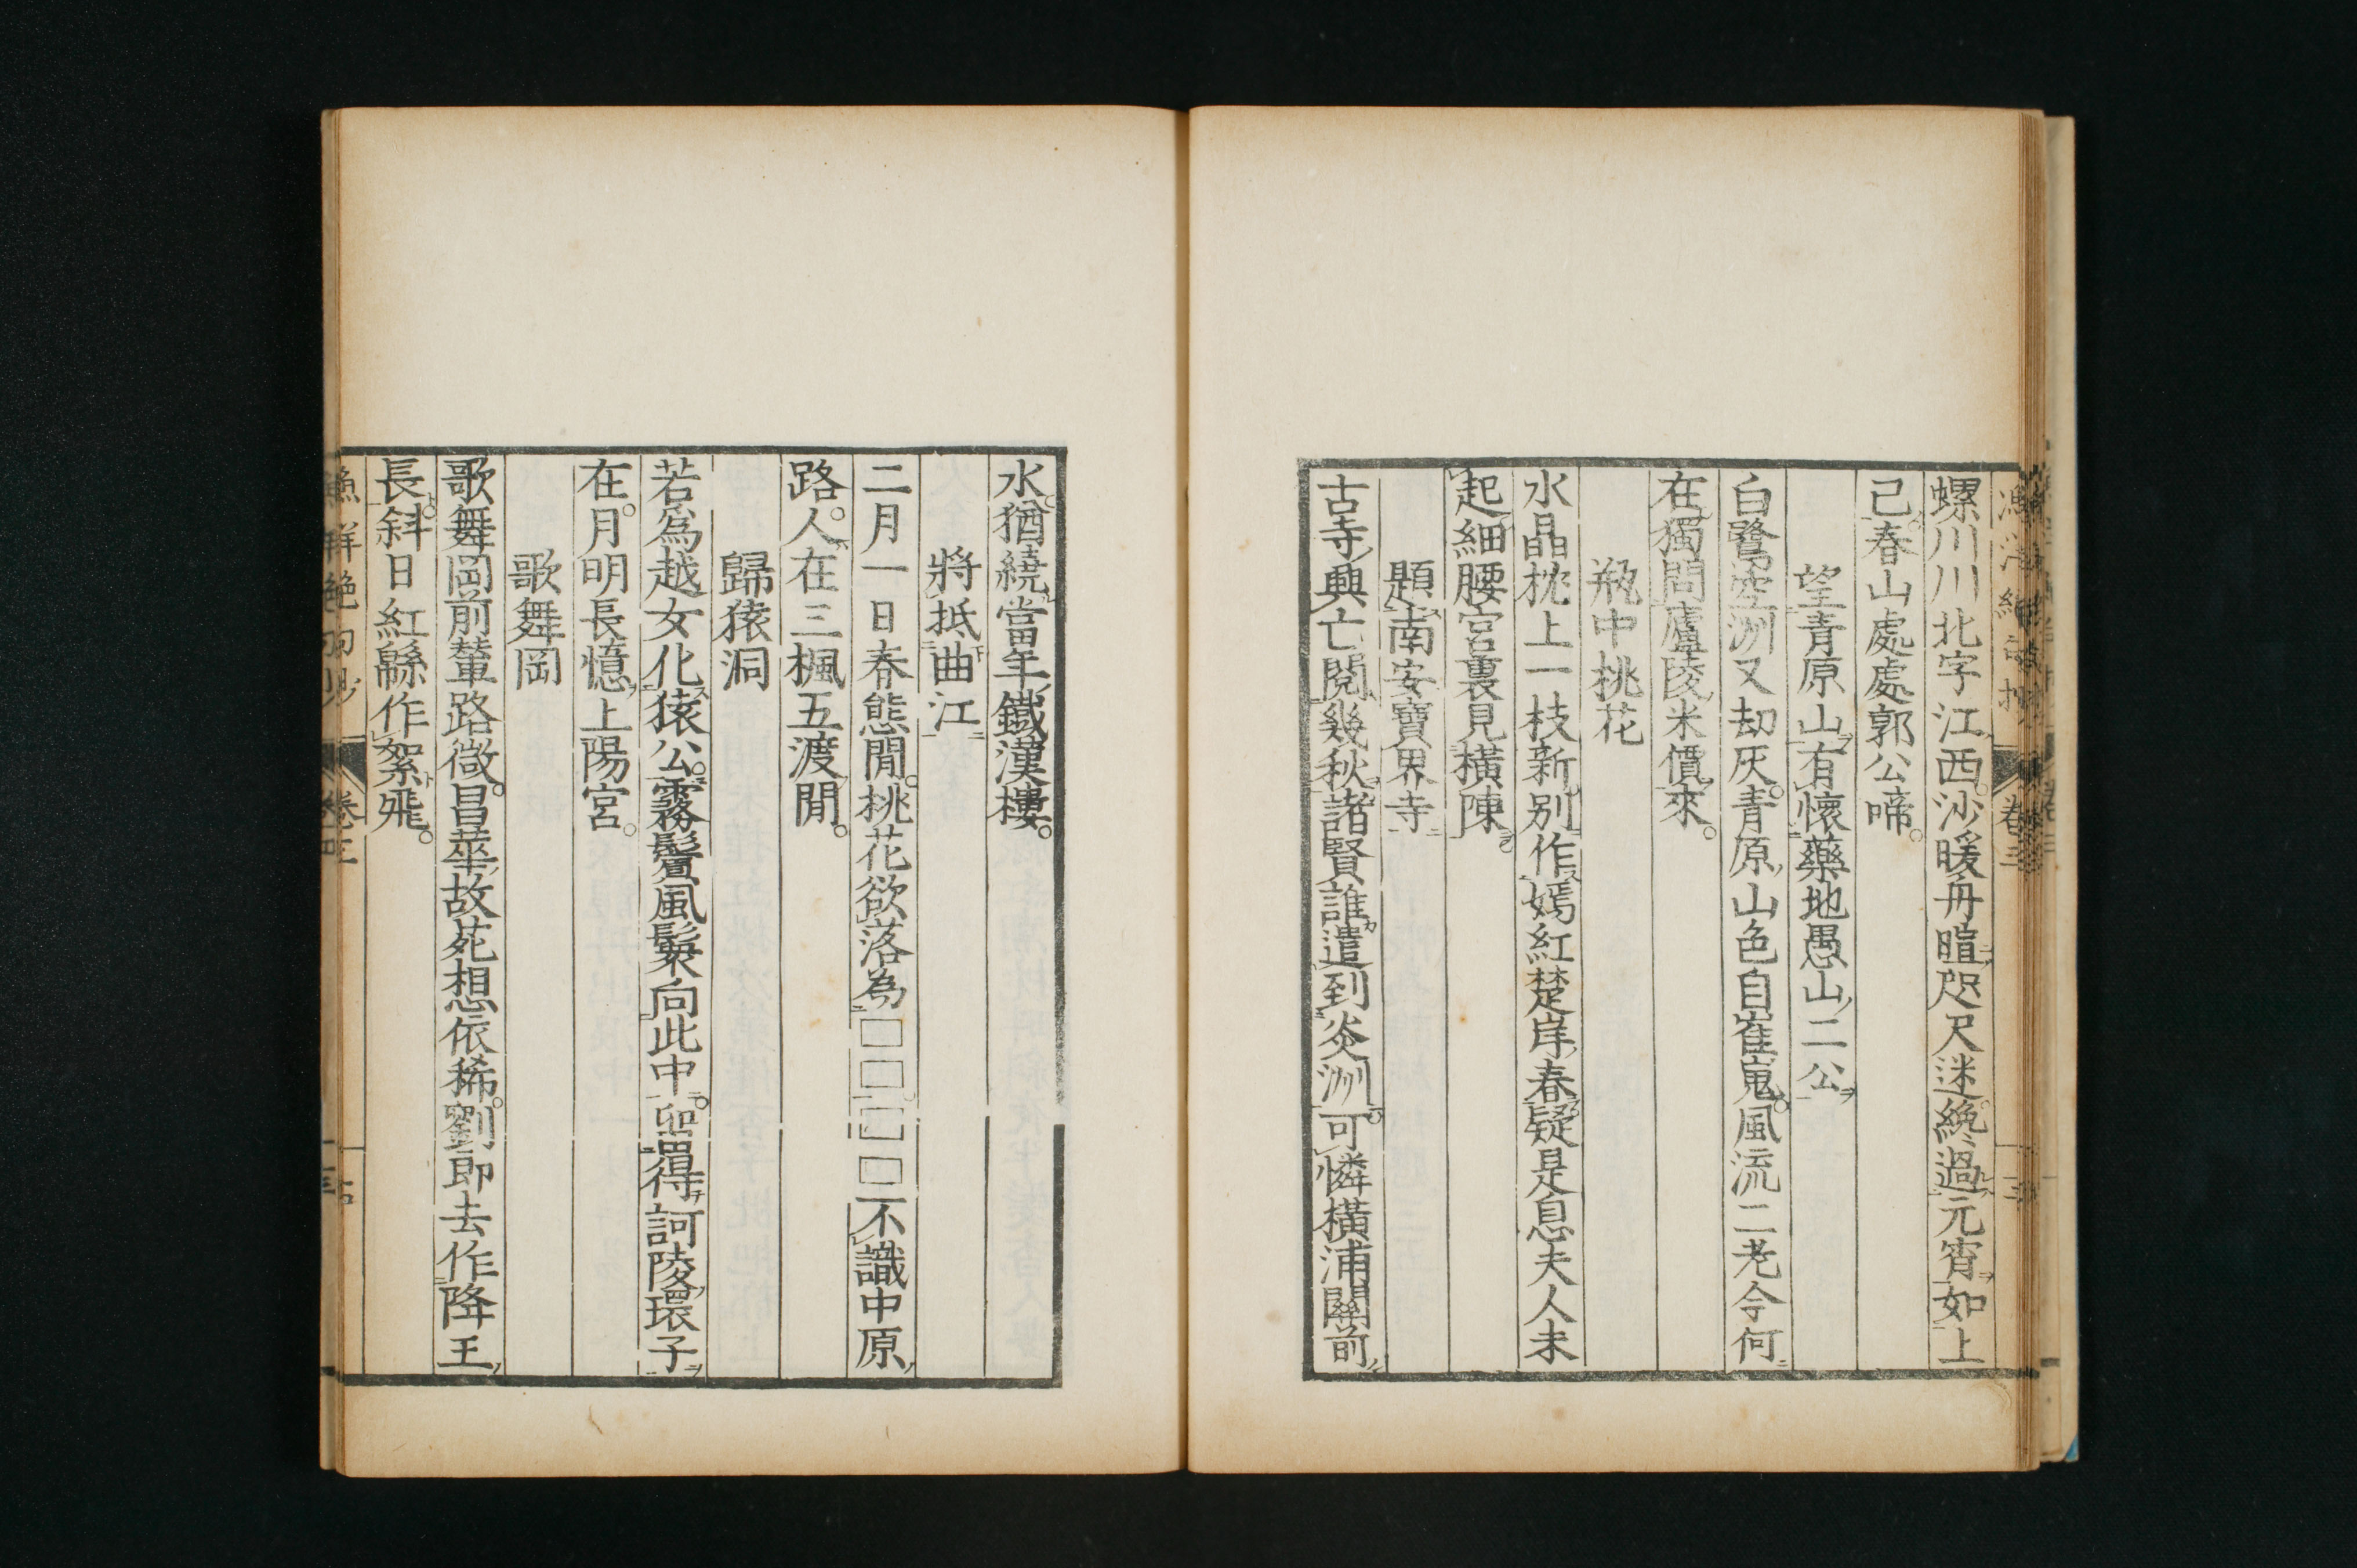 螺川川北字江西。沙暖舟暄咫尺迷。纔過元宵如上
己。春山處處郭公啼。
望青原山有懷藥地愚山二公
白鷺空洲又刧灰。青原山色自崔嵬。風流二老今何
在。獨問廬陵米價來。
瓶中桃花
水晶枕上一枝新。別作嫣紅楚岸春。疑是息夫人未
起。細腰宮裏見橫陳。
題南安寶界寺
古寺興亡閱幾秋。諸賢誰遣到炎洲。可憐橫浦關前
水。猶繞當年鐵漢樓。
將抵曲江
二月一日春態閒。桃花欲落為□□。□□不識中原
路。人在三楓五渡閒。
歸猿洞
若爲越女化猿公。霧鬢風鬟向此中。留得訶陵環子
在。月明長憶上陽宮。
歌舞岡
歌舞岡前輦路微。昌華故苑想依稀。劉郎去作降王
長。斜日紅緜作絮飛。
卷三